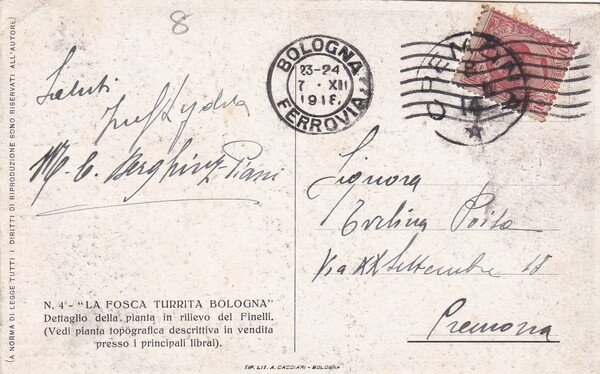 8
BOLOGNA
23-24
7 · XII
1918
FERROVIA
CREMONA
14
Saluti
M. E. Berghinz-Piani
Signora
Evelina Poita
Via XX Settembre 18
Cremona
N. 4 - "LA FOSCA TURRITA BOLOGNA"
Dettaglio della pianta in rilievo del Finelli,
(Vedi pianta topografica descrittiva in vendita
presso i principali librai).
(A NORMA DI LEGGE TUTTI I DIRITTI DI RIPRODUZIONE SONO RISERVATI ALL'AUTORE)
TIP. LIT. A. CACCIARI - BOLOGNA